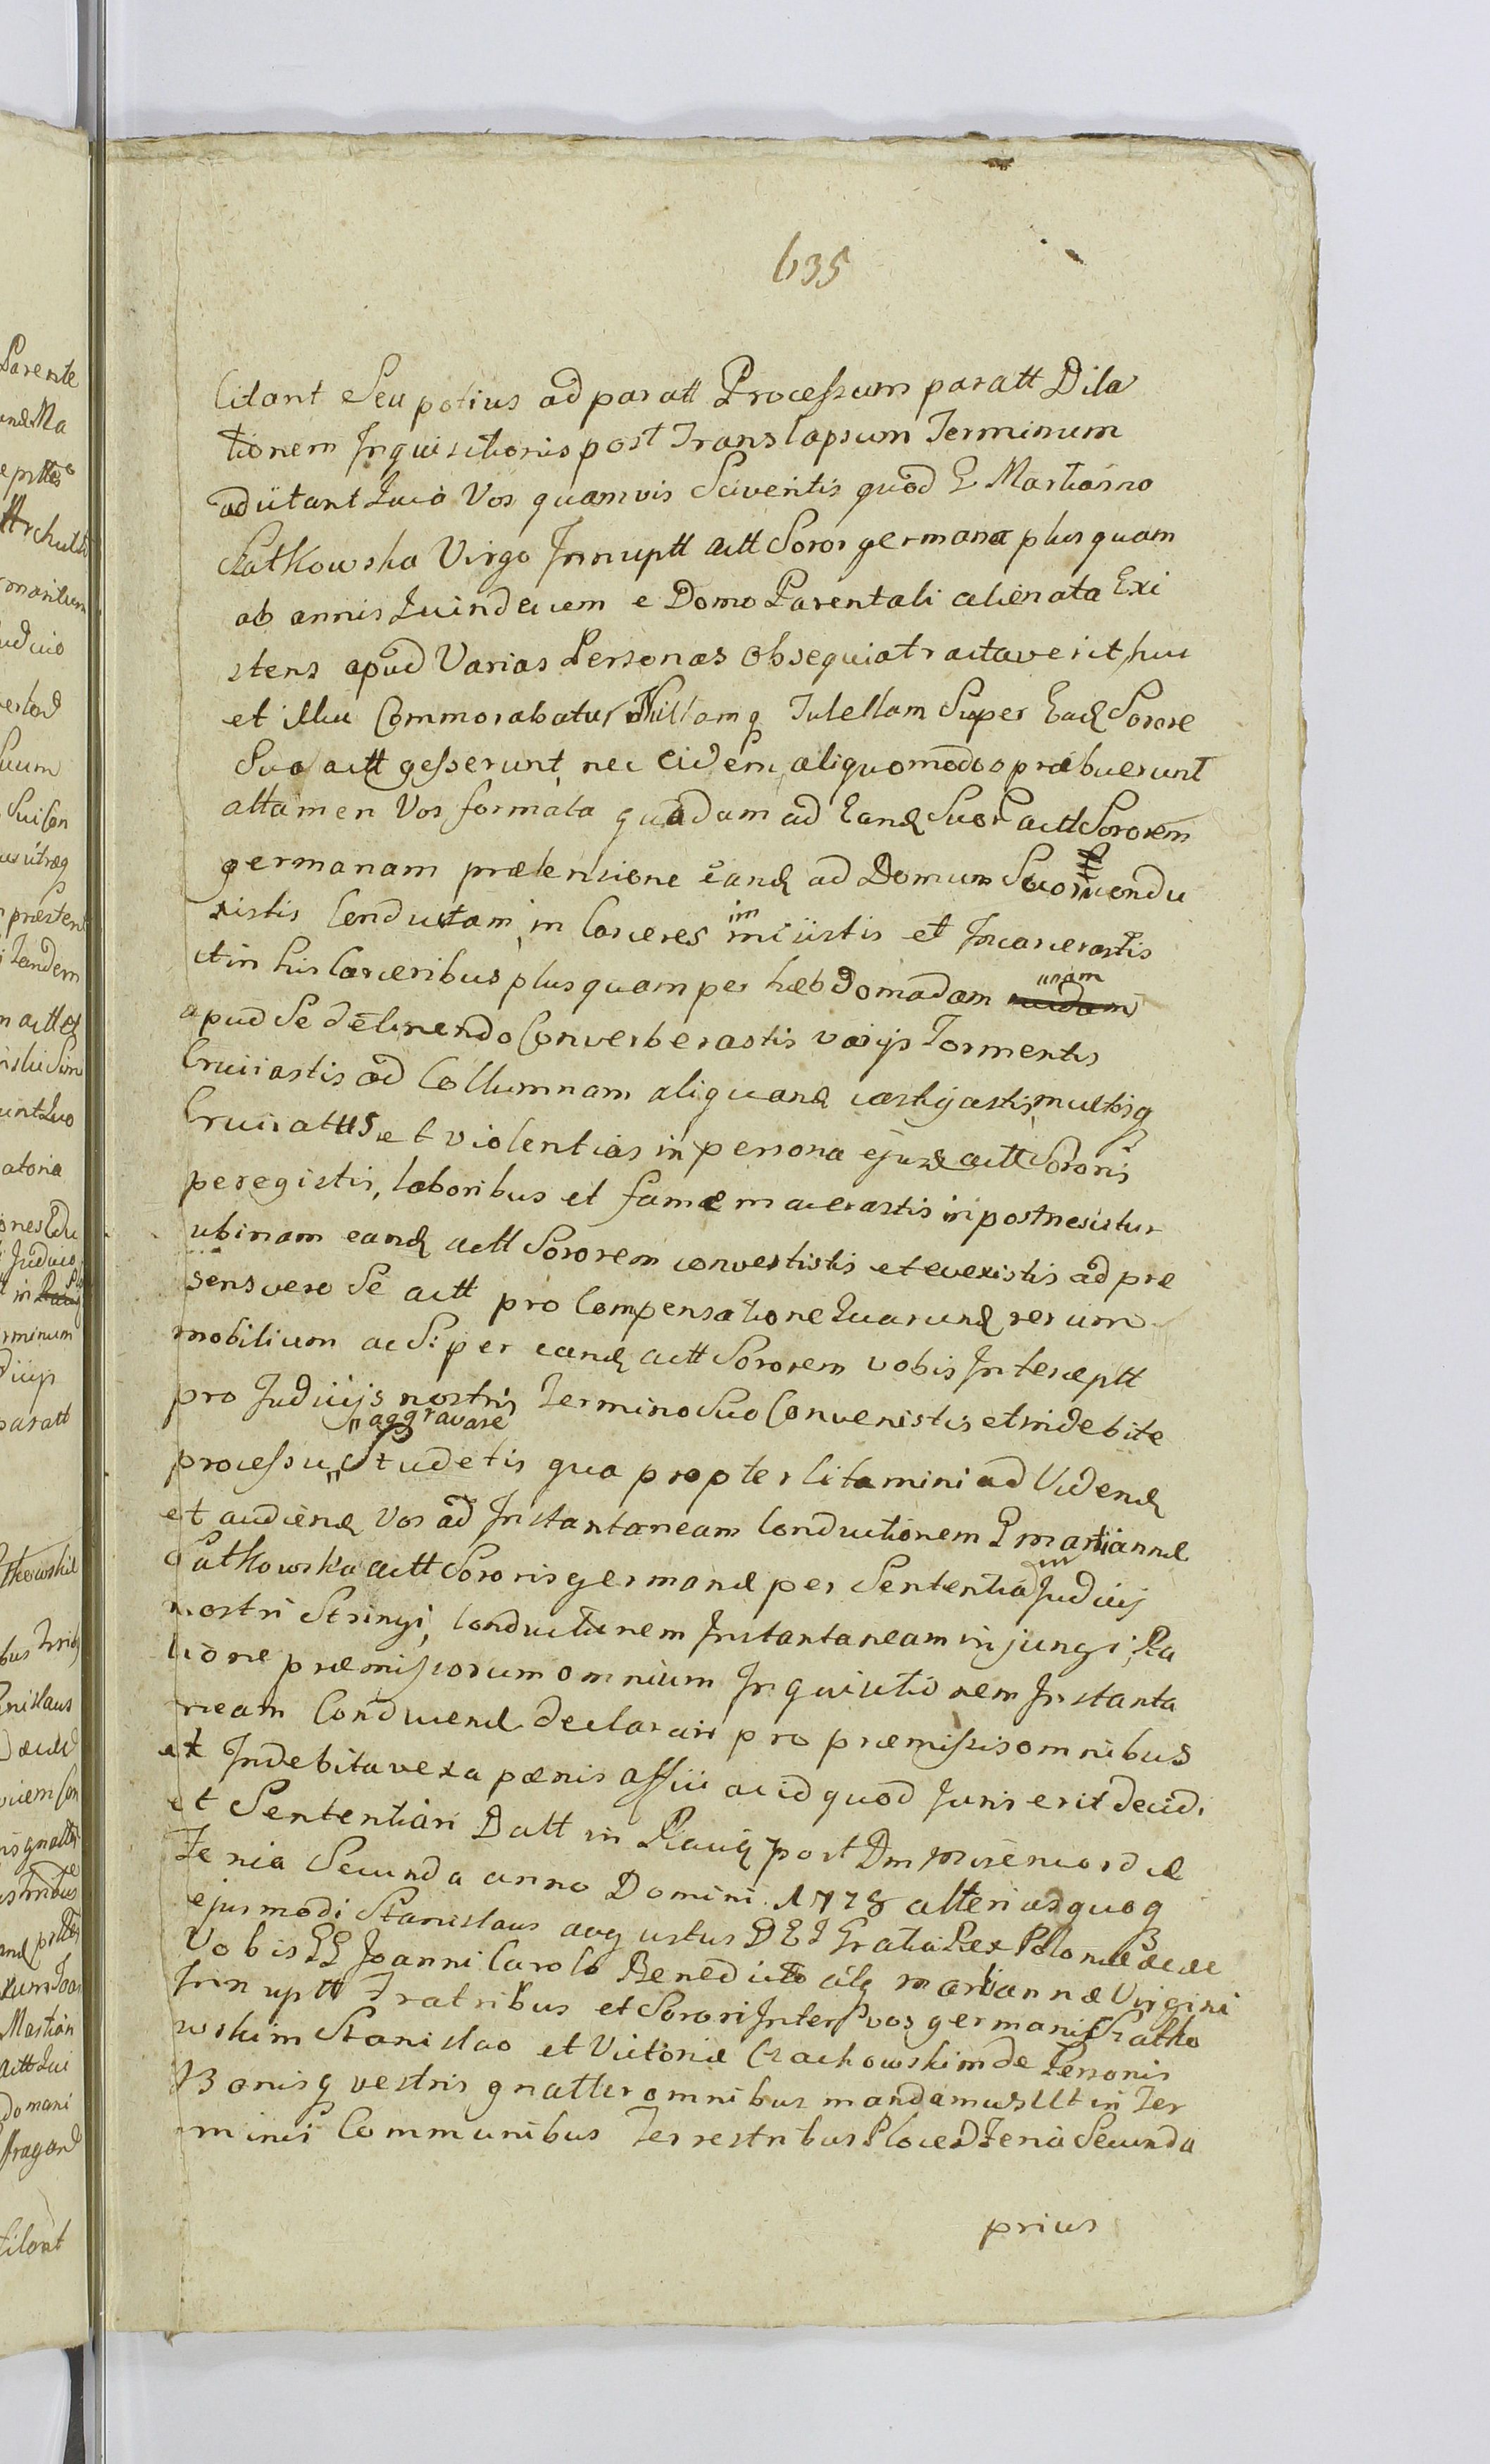 635
Citant Seu potius ad paratt Processum paratt Dila
tionem Inquisitionis post Translapsum Terminum
adcitant Quia Vos quamvis Sciventis quod G Marianna
Ratkowska Virgo Innuptt actt Soror germana plus quam
ab annis Quindecem e Domo Parentali alienata Exi
stens apud Varias Personas obsequia tractaverit huc
et illuc Commorabatur Nullamq Tutellam Super Eadȩ Sorore
Sua actt gesserunt nec Eidem aliquomodo præbuerunt
attamen Vos formata quadam ad Eandȩ Suor actt Sororem
germanam prætensione eandȩ ad Domum condu
xistis Conductam in Carceres im miistis et Incarcerastis
et in his Carceribus plus quam per hæbdomadam unam
apud Se detinendo Converberastis varijs Tormentis
Cruciastis ad Collumnam aligandȩ castigastis multosq
Cruciatus et violentias in persona ejusdȩ actt Sororis
peregistis, laboribus et famæ macerastis in post nescitur
ubinam eandȩ actt Sororem convertistis et evexistis ad præ
sens vero Se actt pro Compensatione Quarundȩ rerum
mobilium ac S: per eandȩ actt Sororem vobis Interceptt
pro Judicijs nostris Termino Suo Convenistis et indebite
aggravare
processu Studetis qua propter Citamini ad Videndȩ
et audiendȩ Vos ad Instantaneam Conductionem G mariannæ
Ratkowska actt Sororis germanæ per Sententiam Judicij
nostri Stringi, Conductionem Instantaneam injungi; Ra
tione præmissorum omnium Inquisitionem Instanta
neam Conducendȩ declarari pro præmissis omnibus
et Indebita vexa pænis affici ac id quod Juris erit decidi
et Sententiari Datt in Raciąż post Dm misericordiæ
Feria Secunda anno Domini 1778 alterius quoq
ejusmodi Stanislaus augustus DEI Gratia Rex Poloniæ &c &c
Vobis GG Joanni Carolo Benedicto ac marianæ Virgini
Innuptt Fratribus et Sorori Inter vos germanis Ratko
wskim Stanislao et Victoriæ Czachowskim de Personis
Bonisq vestris gnatter omnibus mandamus Ut in Ter
minis Communibus Terrestribus Plocen Feria Secunda
prius